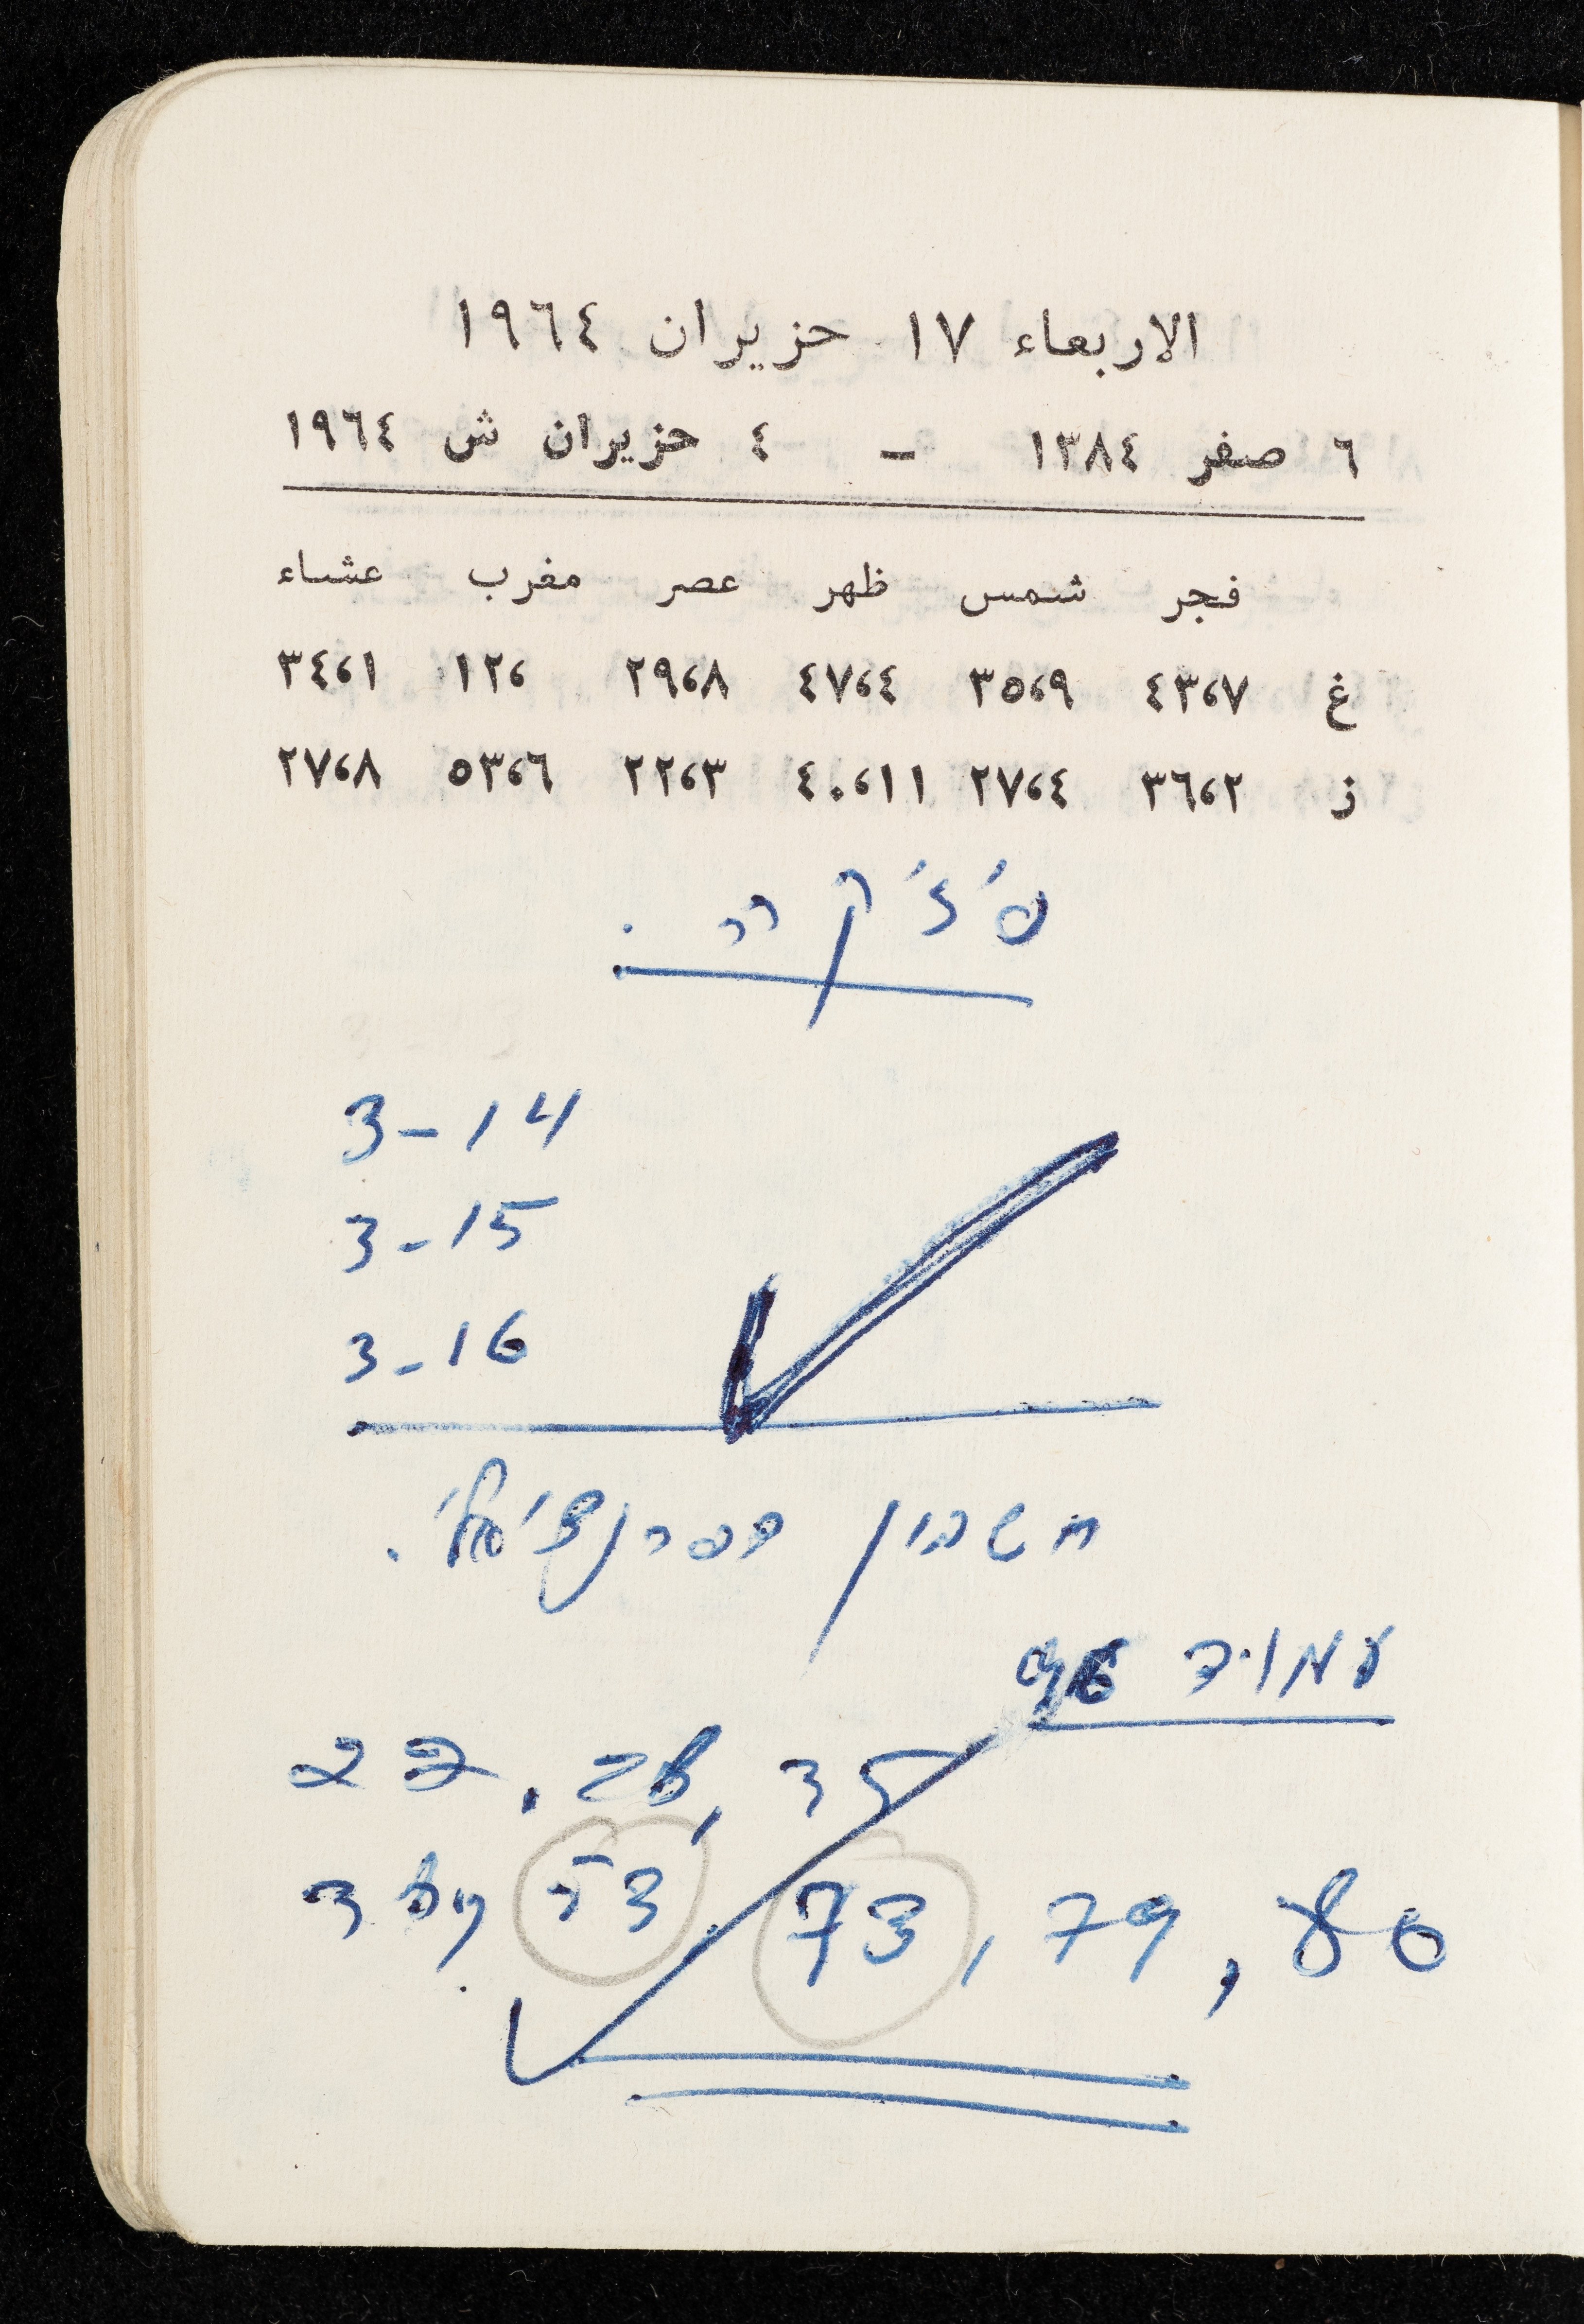 الاربعاء ١٧ حزيران ١٩٦٤
٦ صفر ١٣٨٤ - ٤ حزيران ش ١٩٦٤
فجر شمس ظهر عصر مغرب عشاء
غ ٤٣،٧ ٣٥،٩ ٤٧،٤ ٢٩،٨ ١٢، ٣٤،١
ز ٣٦،٢ ٢٧،٤ ٤٠،١١ ٢٢،٣ ٥٣،٦ ٢٧،٨
פיזיקה .
3-14
3-15
3-16
חשבון דפרנציאלי .
עמוד
22, 28, 35
53, 73, 79, 80